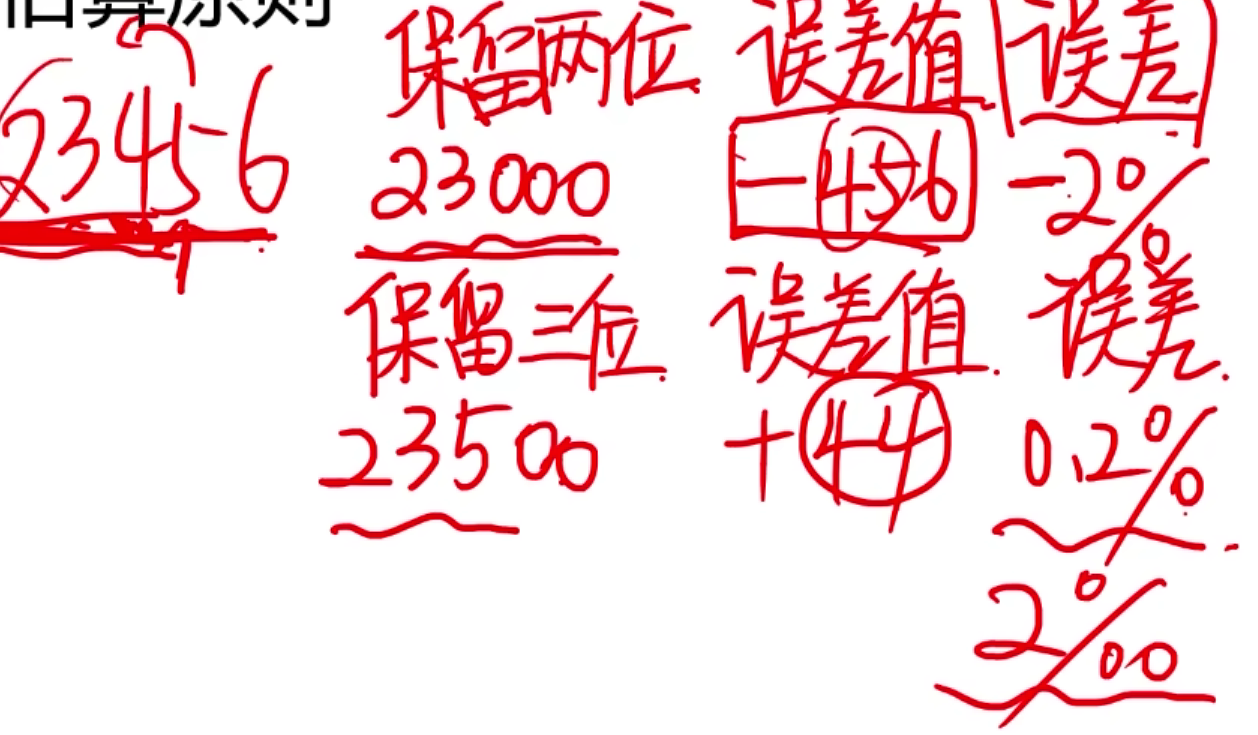 估算原则
23456 保留两位 误差值 误差
23000 -456 -2%
保留三位. 误差值. 误差.
23500 +44 0.2%
2‰